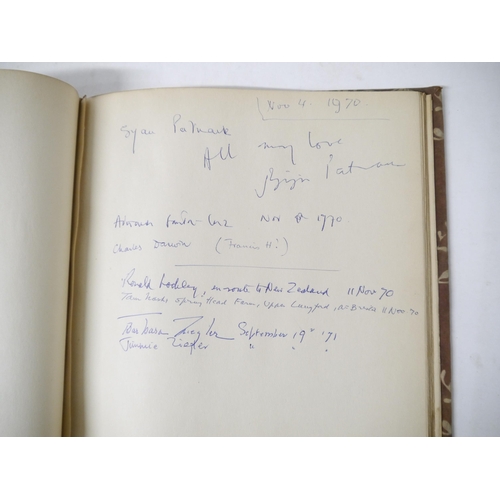 Nov 4. 1970.
Gyan Patnaik
All my love
Biju Patnaik
Nov 8th 1970
Charles Darwin (Francis H?)
Ronald Lockley, en route to New Zealand 11 Nov 70
Spring Head Farm, Upton 11 Nov 70
Barbara Ziegler September 19th '71
Jimmie Ziegler " " "